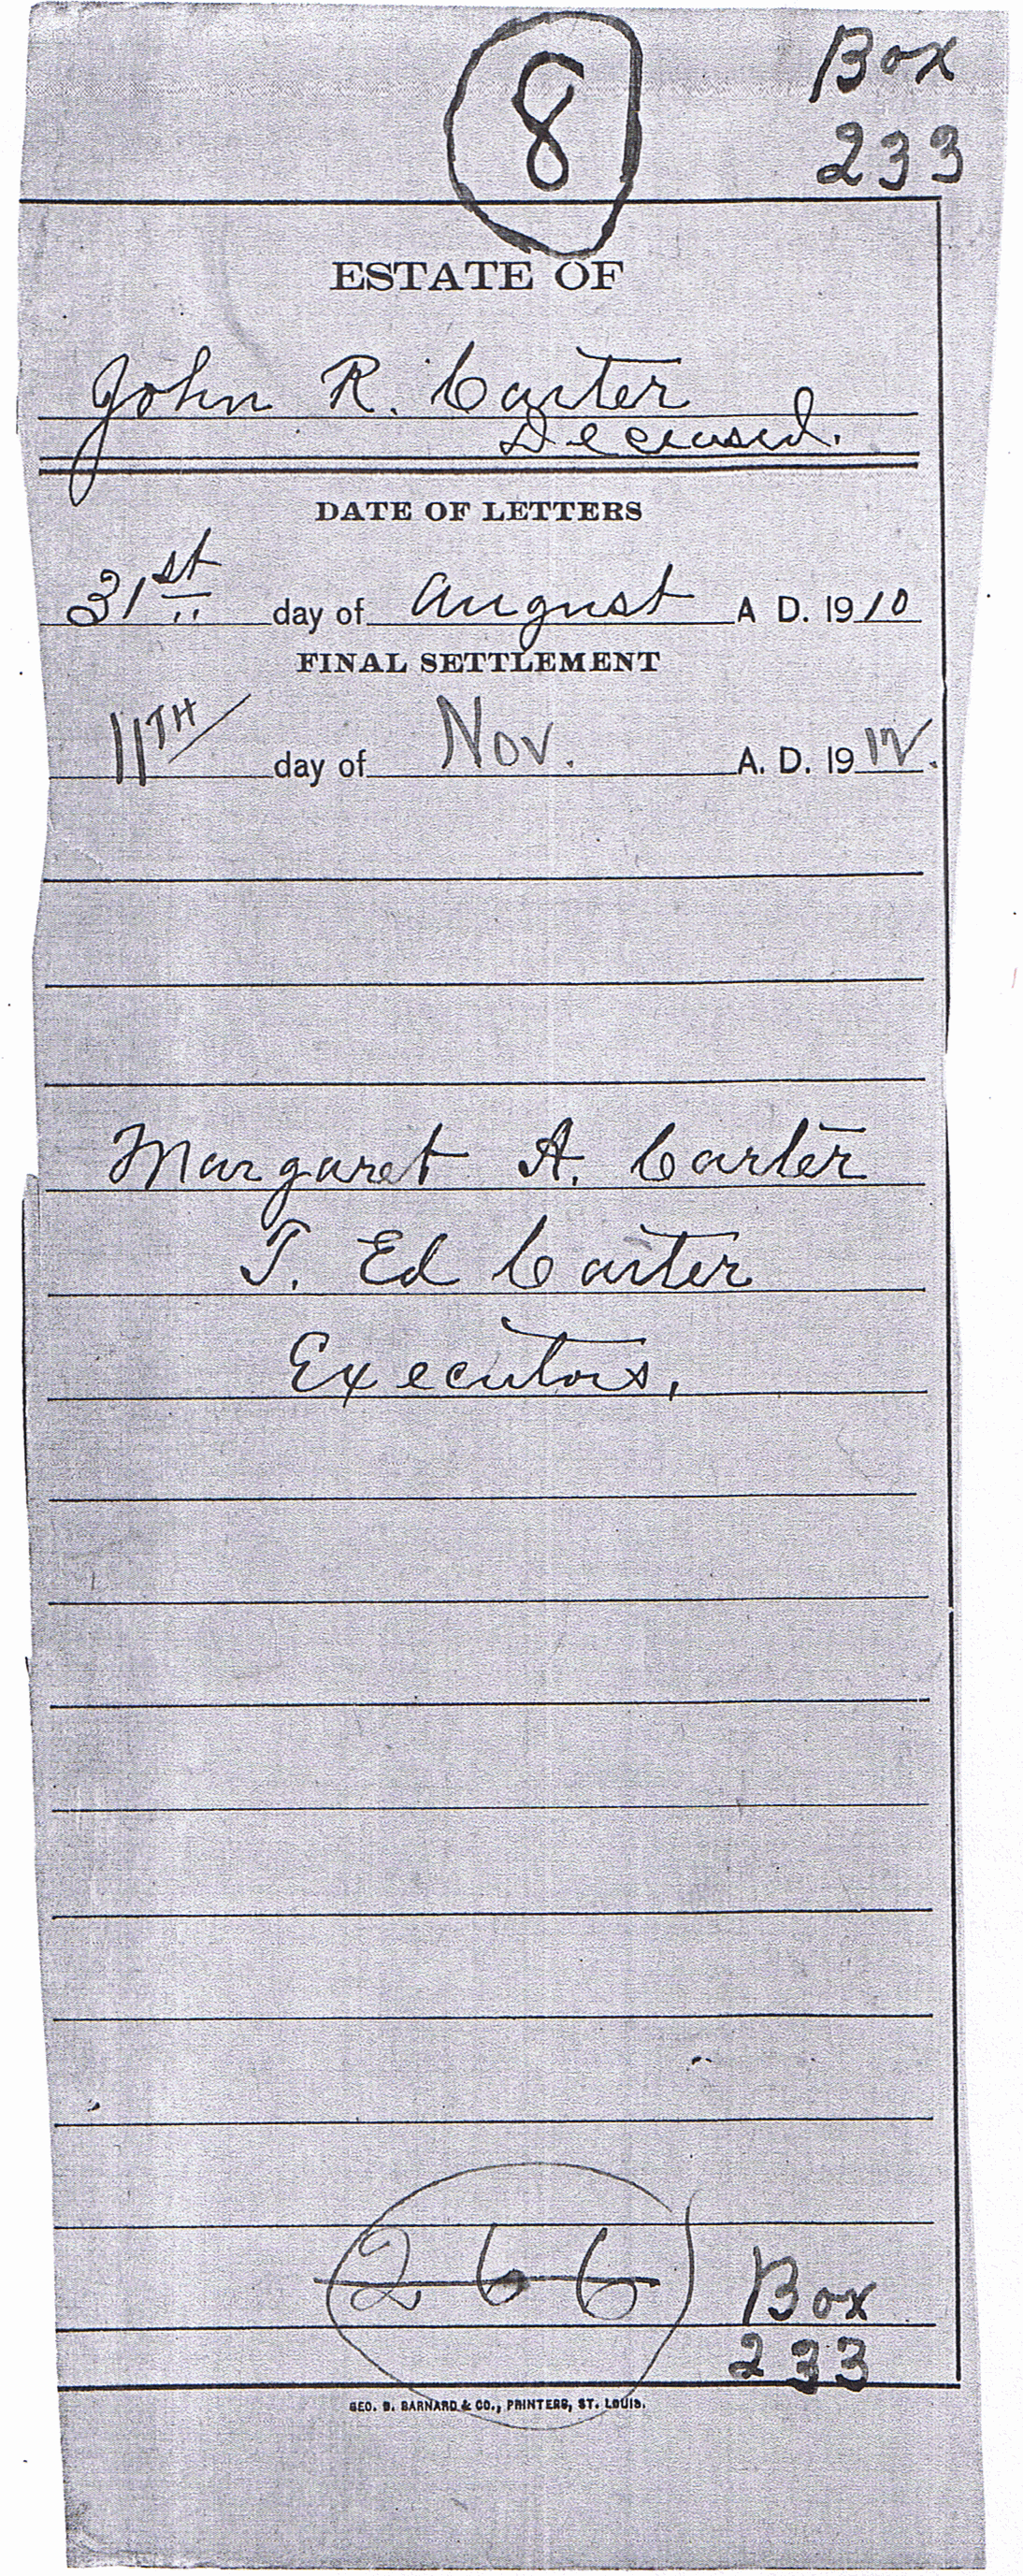 8
Box
233
ESTATE OF
John R. Carter
Deceased.
DATE OF LETTERS
31st day of August A D. 1910
FINAL SETTLEMENT
11TH day of Nov. A. D. 1912.
Margaret A. Carter
T. Ed Carter
Executors,
266
Box
233
GEO. D. BARNARD & CO., PRINTERS, ST. LOUIS.